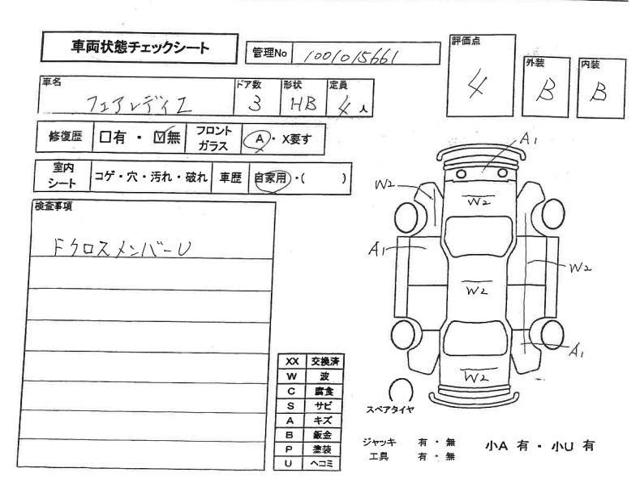 車両状態チェックシート
管理No 1001015661
評価点 4
外装 B
内装 B
車名 フェアレディZ
ドア数 3
形状 HB
定員 4人
修復歴 □有・☑無
フロントガラス A・X要す
室内シート コゲ・穴・汚れ・破れ
車歴 自家用・( )
検査事項
FクロスメンバーU
A1
W2
W2
A1
W2
W2
A1
W2
XX 交換済
W 波
C 腐食
S サビ
A キズ
B 鈑金
P 塗装
U ヘコミ
スペアタイヤ
ジャッキ 有・無
工具 有・無
小A 有・小U 有